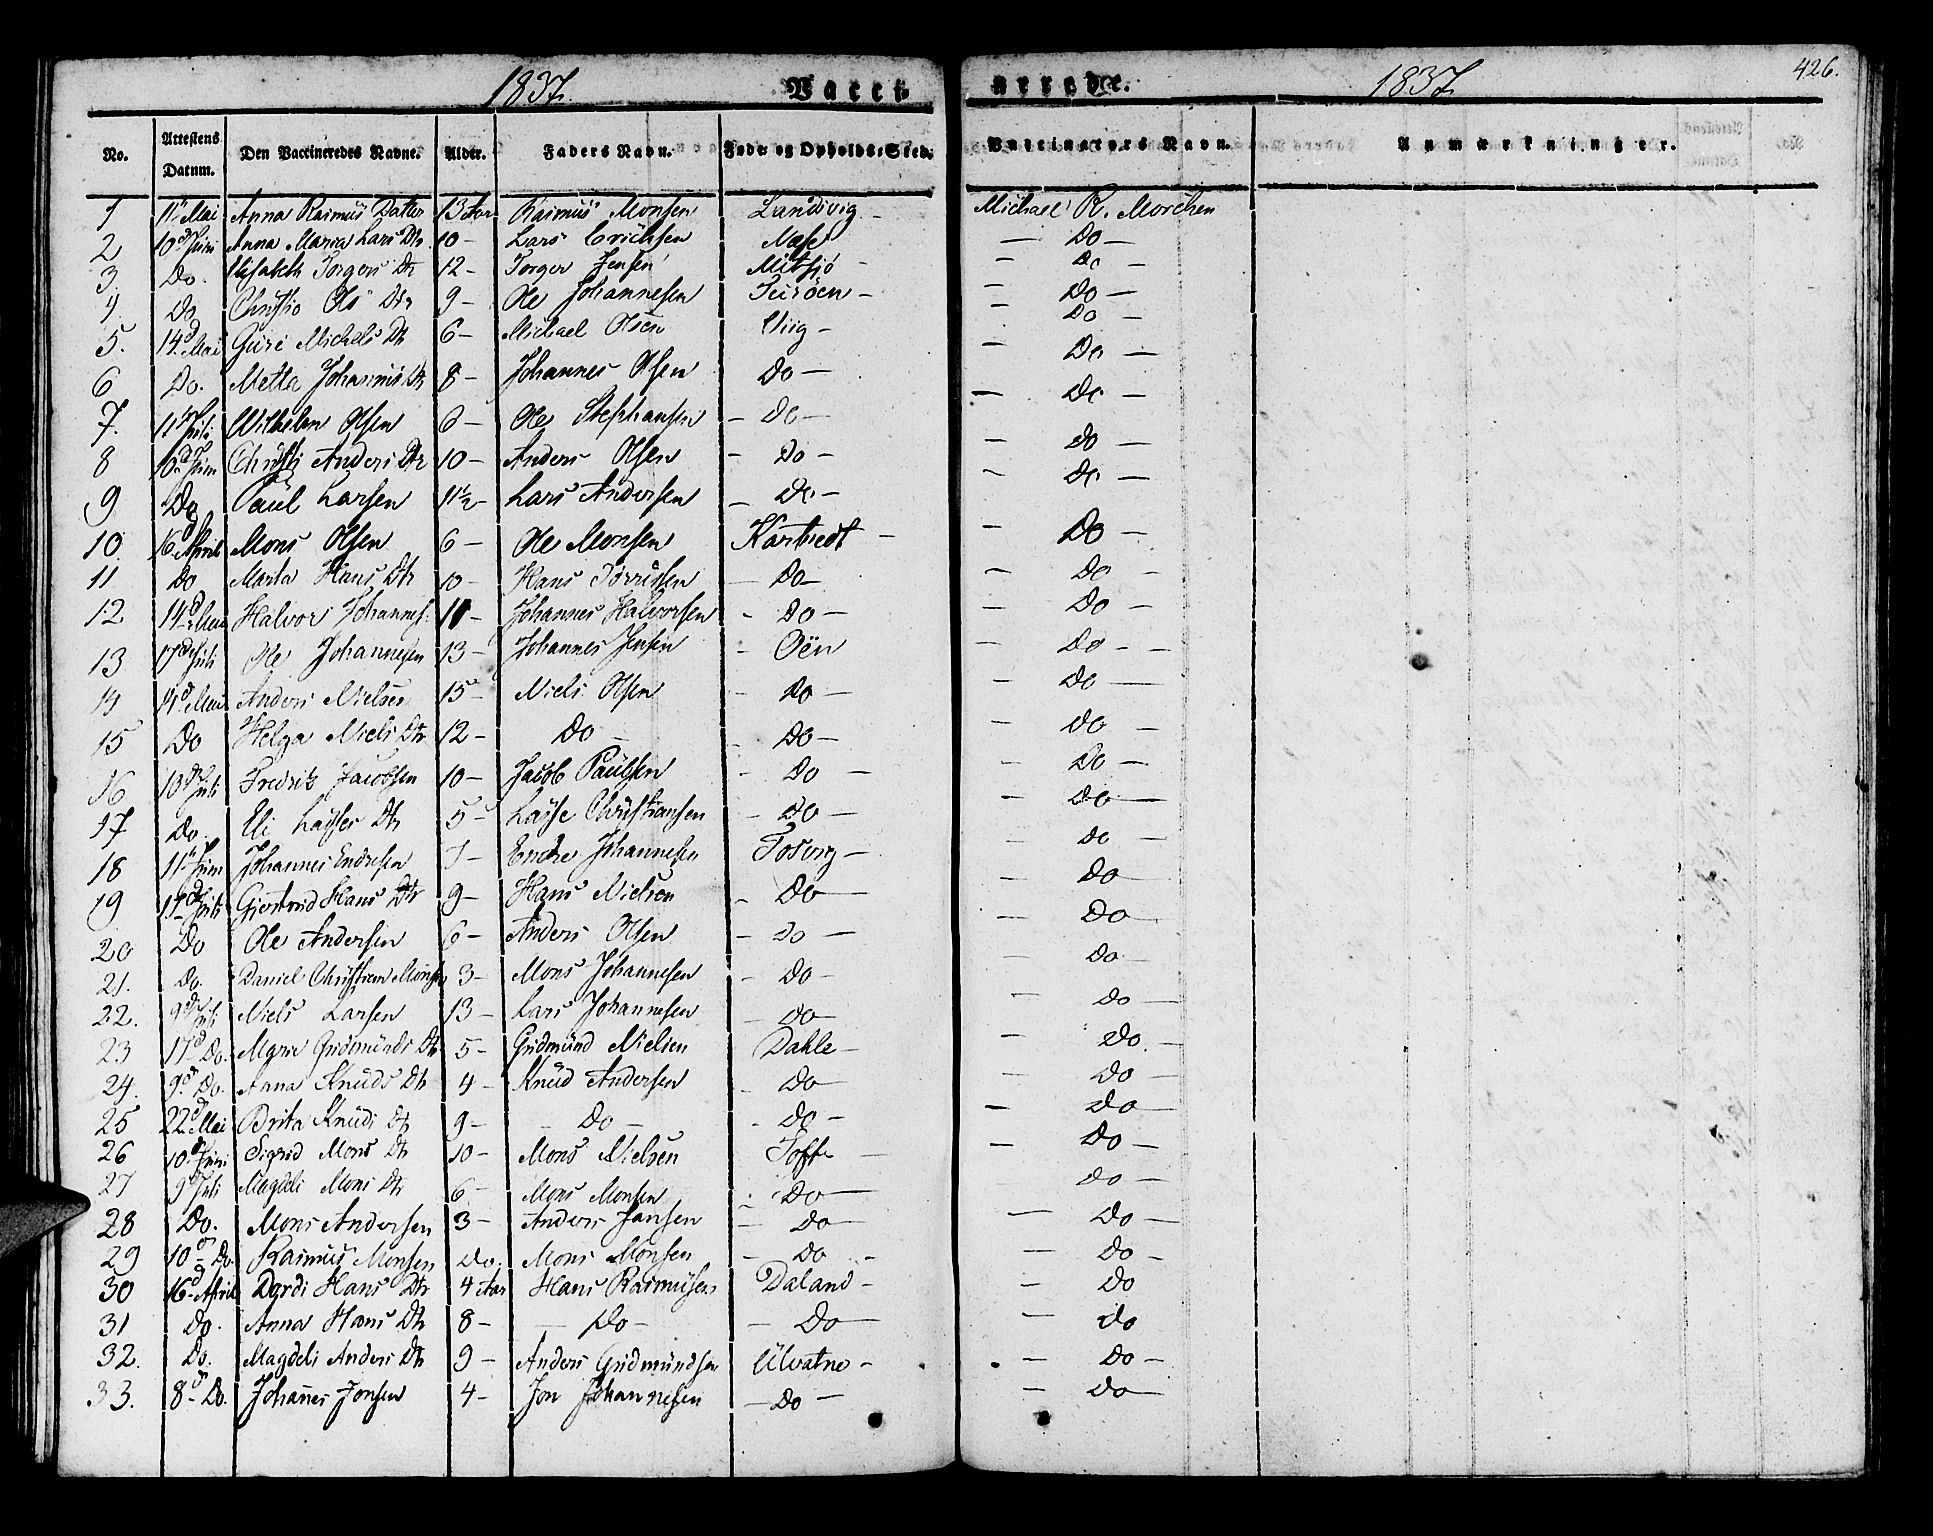 1837. Vacci nerede. 1837 426.
No. Attestens Datum. Den Vaccineredes Navne. Alder. Faders Navn. Føde og Opholds-Sted. Vaccinators Navn. Anmærkninger.
1 11te Mai Anna Rasmus Datter 13 Aar Rasmus Monsen Landsvig - Michael R. Morchen
2 10de Juni Anna Maria Lars Dtr 10 - Lars Erichsen Næse - Do -
3. Do. Elisabeth Torgers Dtr 12 - Torger Jensen Mitsjø - - Do -
4. Do Christio Ols Dtr 9 - Ole Johannesen - Do -
5. 14d Mai Guri Michels Dtr 6 - Michael Olsen Viig - - Do -
6 Do. Metta Johannis Dtr 8 - Johannes Olsen Do - - Do -
7. 11te Juli Wilhelm Olsen 6 - Ole Stephansen - Do - - Do -
8 10d Juni Christi Anders Dtr 10 - Anders Olsen - Do - - Do -
9 Do Paul Larsen 11½ - Lars Andersen - Do - - Do -
10 16d April Mons Olsen 6 - Ole Monsen Kartvedt - - Do -
11 Do Marta Hans Dtr 10 - Hans Torrissen - Do - - Do -
12 14d Mai Halvor Johannes. 11 - Johannes Halvorsen - Do - - Do -
13 17d Juli Ole Johannesen 13 - Johannes Jensen - Oën - Do - -
14 14d Mai Anders Nielsen 15 - Niels Olsen - Do - - Do -
15 Do Helga Niels Dtr 12 - Do - - Do - - Do -
16 10d Juli Fredrik Jacobsen 10 - Jacob Paulsen - Do - - Do -
17 Do. Eli Lasses Dtr 5 - Lasse Christiansen - Do - - Do -
18 11te Juni Johannes Endresen 7 - Endre Johannesen Toborg - - Do -
19 17d Juli Giertrud Hans Dtr 9 - Hans Nielsen - Do - - Do -
20 Do Ole Andersen 6 - Anders Olsen - Do - - Do -
21. Do. Daniel Christian Monsen 3 - Mons Johannesen - Do - - Do -
22. 9d Juli Niels Larsen 13 - Lars Johannesen - Do - - Do -
23 17d Do. Gudmunds Dtr 5 - Gudmund Nielsen Dahle - - Do. -
24. 9de Do. Anna Knuds Dtr 4 - Knud Andersen - Do - Do -
25 22d Mai Brita Knuds Dtr 9 - - Do - - Do - - Do -
26 10d Juni Sigrid Mons Dtr 10 - Mons Nielsen Tofte - - Do -
27 9d Juli Magdeli Mons Dtr 6 - Mons Monsen - Do - - Do -
28 Do. Mons Andersen 3 - Anders Jansen - Do - - Do -
29 10d Do. Rasmus Monsen Do. Mons Monsen - Do - - Do -
30 16d April Dordi Hans Dtr 4 Aar Hans Rasmusen Daland - - Do
31 Do. Anna Hans Dtr 8 - - Do - - Do - - Do
32. Do. Magdeli Anders Dtr 9 - Anders Gudmundsen Ulvatne - - Do -
33. 8d Do. Johanes Jonsen 4 - Jon Johannesen - Do - - Do -